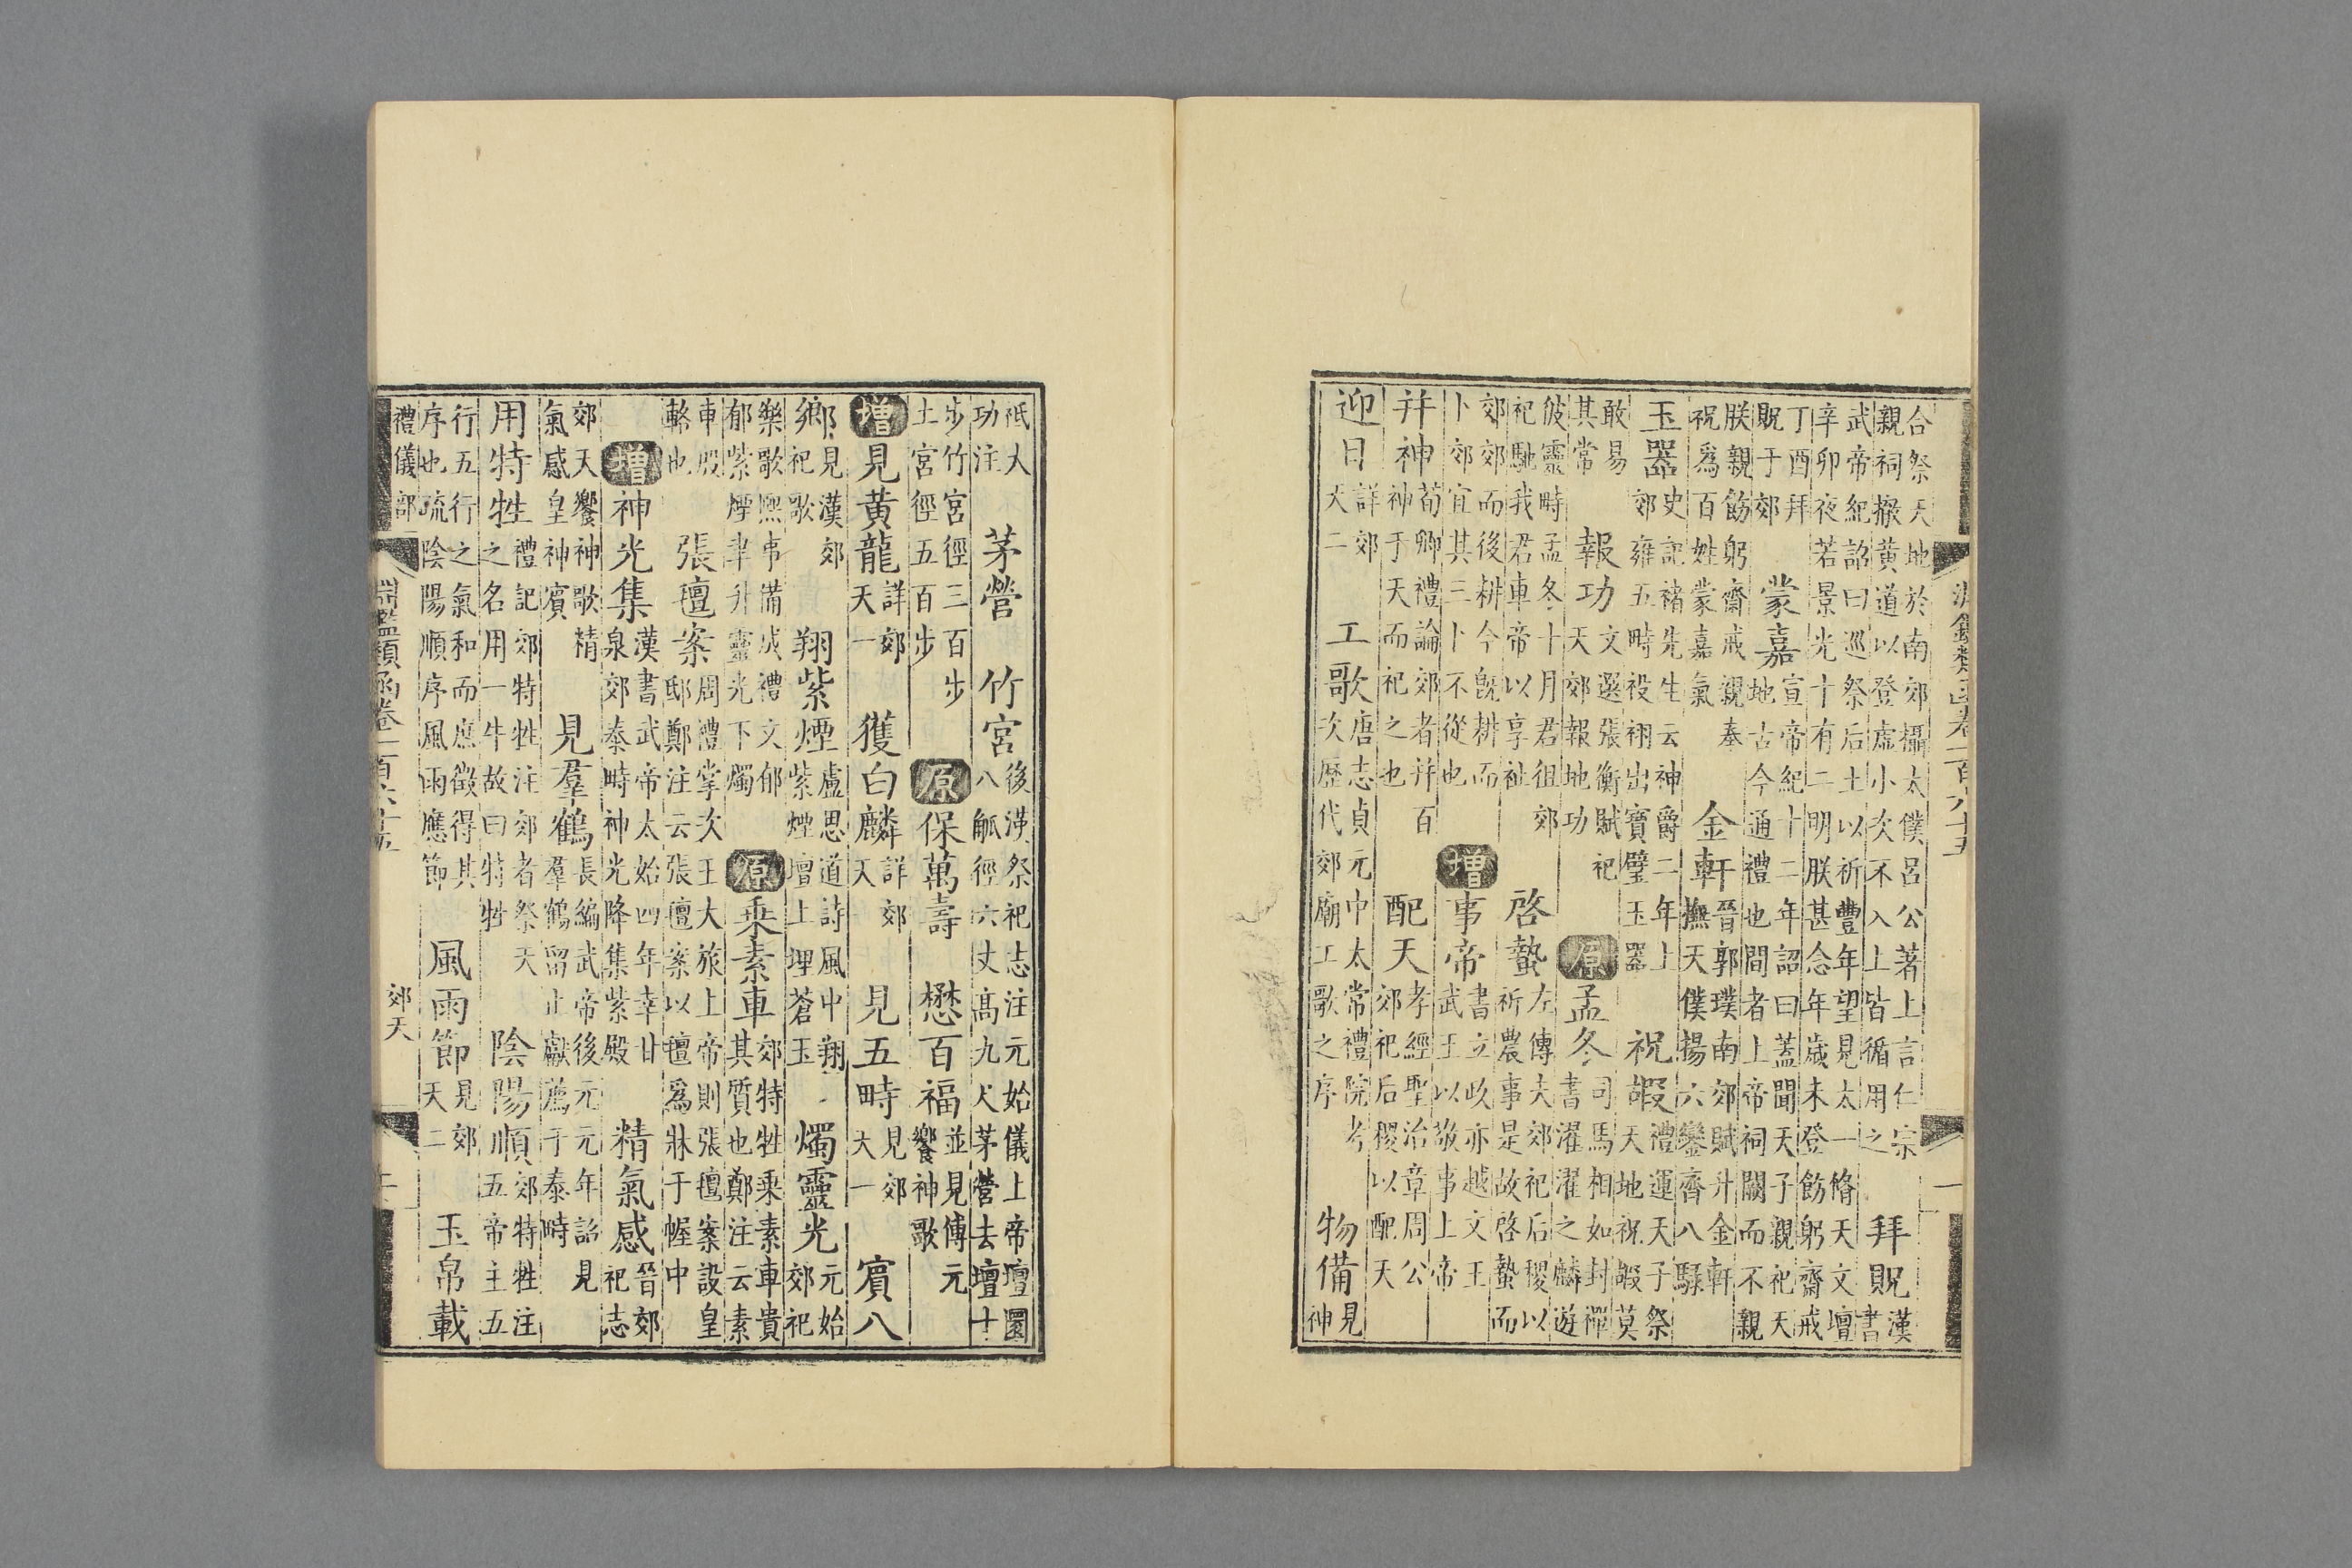 合祭天地於南郊攝太僕呂公著上言仁宗
親祠撤黃道以登虛小次不入上皆循用之
拜貺
漢
書
武帝紀詔曰巡祭后土以祈豐年望見太一脩天文壇
辛卯夜若景光十有二明朕甚念年歲未登飭躬齋戒
丁酉拜
貺于郊
蒙嘉
宣帝紀十二年詔曰蓋聞天子親祀天
地古今通禮也間者上帝祠闕而不親
朕親飭躬齋戒親奉
祝爲百姓蒙嘉氣
金軒
晉郭璞南郊賦升金軒
撫天僕揚六鑾齊八騄
玉器
史記褚先生云神爵二年上
郊雍五畤祋祤出寶璧玉器
祝嘏
禮運天子祭
天地祝嘏莫
敢易
其常
報功
文選張衡賦祀
天郊報地功
原
孟冬
司馬相如封禪
書濯濯之麟遊
彼靈畤孟冬十月君徂郊
祀馳我君車帝以享祉
啓蟄
左傳夫郊祀后稷以
祈農事是故啓蟄而
郊郊而後耕今既耕而
卜郊宜其三卜不從也
增
事帝
書立政亦越文王
武王以敬事上帝
并神
荀卿禮論郊者并百
神于天而祀之也
配天
孝經聖治章周公
郊祀后稷以配天
迎日
詳郊
天二
工歌
唐志貞元中太常禮院考
次歷代郊廟工歌之序
物備
見
神
祗大
功注
茅營
竹宮
後漢祭祀志注元始儀上帝壇圜
八觚徑六丈高九尺茅營去壇十
步竹宮徑三百步
土宮徑五百步
原
保萬壽
懋百福
並見傅元
饗神歌
增
見黃龍
詳郊
天一
獲白麟
詳郊
天一
見五畤
見郊
天一
賓八
鄉
見漢郊
祀歌
翔紫煙
盧思道詩風中翔
紫煙壇上埋蒼玉
燭靈光
元始
郊祀
樂歌熈事備成禮文郁
郁紫煙聿升靈光下燭
原
乗素車
郊特牲乗素車貴
其質也鄭注云素
車殷
輅也
張氊案
周禮掌次王大旅上帝則張氊案設皇
邸鄭注云張氊案以氊爲牀于幄中
增
神光集
漢書武帝太始四年幸甘
泉郊泰畤神光降集紫殿
精氣感
晉郊
祀志
郊天饗神歌精
氣感皇神賓
見羣鶴
長編武帝後元元年詔見
羣鶴留止獻薦于泰畤
用特牲
禮記郊特牲注郊者祭天
之名用一牛故曰特牲
陰陽順
郊特牲注
五帝主五
行五行之氣和而庶徵得其
序也疏陰陽順序風雨應節
風雨節
見郊
天二
玉帛載
禮儀部
淵鑑類函卷一百六十五
郊天